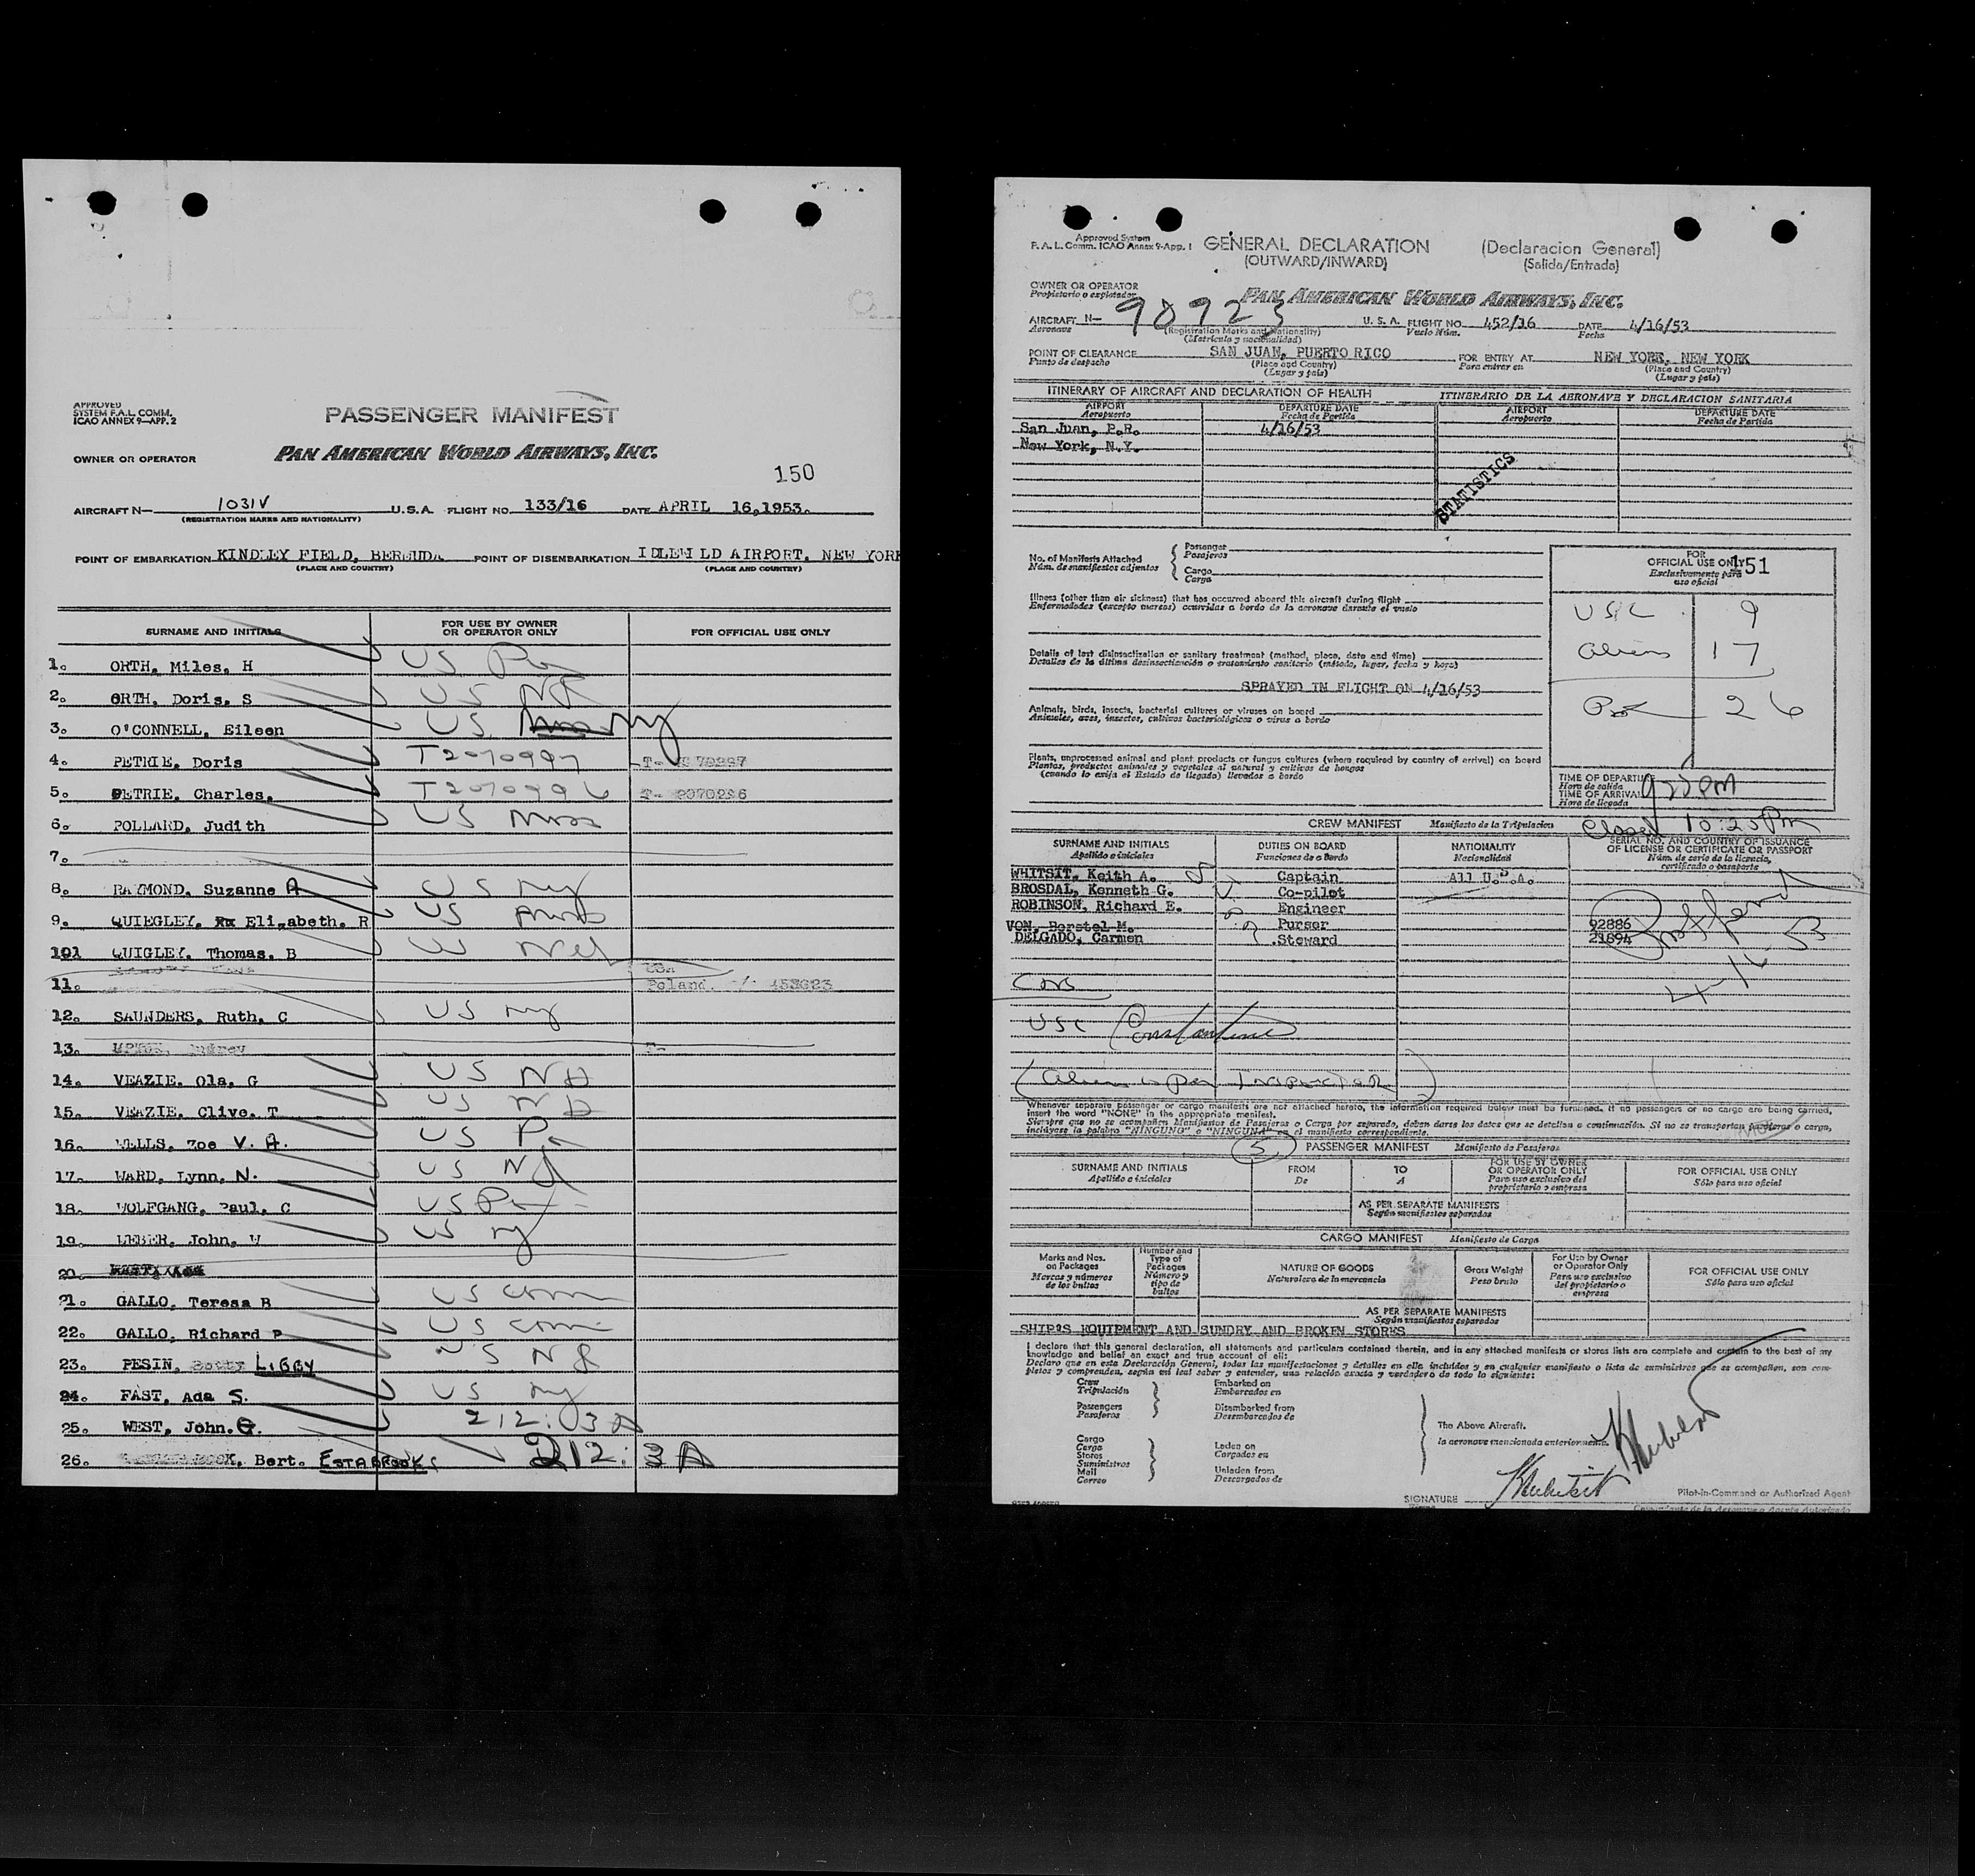 APPROVED
SYSTEM F.A.L. COMM.
ICAO ANNEX 9—APP. 2
PASSENGER MANIFEST
OWNER OR OPERATOR PAN AMERICAN WORLD AIRWAYS, INC.
150
AIRCRAFT N— 1031V U.S.A. FLIGHT NO. 133/16 DATE APRIL 16,1953.
(REGISTRATION MARKS AND NATIONALITY)
POINT OF EMBARKATION KINDLEY FIELD, BERMUDA POINT OF DISEMBARKATION IDLEWILD AIRPORT, NEW YORK
(PLACE AND COUNTRY) (PLACE AND COUNTRY)
SURNAME AND INITIALS FOR USE BY OWNER OR OPERATOR ONLY FOR OFFICIAL USE ONLY
1. ORTH, Miles, H US Pen
2. ORTH, Doris, S US NJ
3. O'CONNELL, Eileen US NY
4. PETRIE, Doris T2070997
5. PETRIE, Charles. T2070996
6. POLLARD, Judith US Mass
7.
8. RAYMOND, Suzanne A US NY
9. QUIEGLEY, Elizabeth. R US
101 QUIGLEY, Thomas. B US
11. Poland.
12. SAUNDERS, Ruth, C US NY
13. UPTON, Audrey T-
14. VEAZIE, Ola, G US NH
15. VEAZIE, Clive, T US NH
16. WELLS, Zoe V. A. US Pa
17. WARD, Lynn, N. US NJ
18. WOLFGANG, Paul, C US Pa
19. WEBER, John, W US NY
20.
21. GALLO, Teresa B US Conn
22. GALLO, Richard P US Conn
23. PESIN, Betty LIBBY US NJ
24. FAST, Ada S. US NY
25. WEST, John. G. 212. 3A
26. Bert. ESTABROOKS 212. 3A
Approved System
F. A. L. Comm. ICAO Annex 9-App. 1 GENERAL DECLARATION (Declaracion General)
(OUTWARD/INWARD) (Salida/Entrada)
OWNER OR OPERATOR
Propietario o explotador PAN AMERICAN WORLD AIRWAYS, INC.
AIRCRAFT N— 90923 U. S. A. FLIGHT NO. 452/16 DATE 4/16/53
Aeronave (Registration Marks and Nationality) Vuelo Núm. Fecha
(Matrícula y nacionalidad)
POINT OF CLEARANCE SAN JUAN, PUERTO RICO FOR ENTRY AT NEW YORK, NEW YORK
Punto de despacho (Place and Country) Para entrar en (Place and Country)
(Lugar y país) (Lugar y país)
ITINERARY OF AIRCRAFT AND DECLARATION OF HEALTH ITINERARIO DE LA AERONAVE Y DECLARACION SANITARIA
AIRPORT DEPARTURE DATE AIRPORT DEPARTURE DATE
Aeropuerto Fecha de Partida Aeropuerto Fecha de Partida
San Juan, P.R. 4/16/53
New York, N.Y.
STATISTICS
No. of Manifests Attached Passenger
Núm. de manifiestos adjuntos Pasajeros
Cargo
Carga
FOR OFFICIAL USE ONLY 151
Exclusivamente para uso oficial
USC 9
Aliens 17
26
Illness (other than air sickness) that has occurred aboard this aircraft during flight
Enfermedades (excepto mareos) ocurridas a bordo de la aeronave durante el vuelo
Details of last disinsectization or sanitary treatment (method, place, date and time)
Detalles de la última desinsectización o tratamiento sanitario (método, lugar, fecha y hora)
SPRAYED IN FLIGHT ON 4/16/53
Animals, birds, insects, bacterial cultures or viruses on board
Animales, aves, insectos, cultivos bacteriológicos o virus a bordo
Plants, unprocessed animal and plant products or fungus cultures (where required by country of arrival) on board
Plantas, productos animales y vegetales al natural y cultivos de hongos
(cuando lo exija el Estado de llegada) llevados a bordo
TIME OF DEPARTURE
Hora de salida
TIME OF ARRIVAL
Hora de llegada
Closed 10:20 PM
CREW MANIFEST Manifiesto de la Tripulacion
SURNAME AND INITIALS DUTIES ON BOARD NATIONALITY SERIAL NO. AND COUNTRY OF ISSUANCE OF LICENSE OR CERTIFICATE OR PASSPORT
Apellido e iniciales Funciones de a Bordo Nacionalidad Núm. de serie de la licencia, certificado o pasaporte
WHITSIT, Keith A. Captain All U.S.A.
BROSDAL, Kenneth G. Co-pilot
ROBINSON, Richard E. Engineer
VON, Borstel M. Purser 92886
DELGADO, Carmen Steward 21694
4-16-53
USC Constantine
Whenever separate passenger or cargo manifests are not attached hereto, the information required below must be furnished. If no passengers or no cargo are being carried,
insert the word "NONE" in the appropriate manifest.
Siempre que no se acompañen Manifiestos de Pasajeros o Carga por separado, deben darse los datos que se detallan a continuación. Si no se transportan pasajeros o carga,
inclúyase la palabra "NINGUNO" o "NINGUNA" en el manifiesto correspondiente.
5 PASSENGER MANIFEST Manifiesto de Pasajeros
SURNAME AND INITIALS FROM TO FOR USE BY OWNER OR OPERATOR ONLY FOR OFFICIAL USE ONLY
Apellido e iniciales De A Para uso exclusivo del propietario o empresa Sólo para uso oficial
AS PER SEPARATE MANIFESTS
Según manifiestos separados
CARGO MANIFEST Manifiesto de Carga
Marks and Nos. on Packages Number and Type of Packages NATURE OF GOODS Gross Weight For Use by Owner or Operator Only FOR OFFICIAL USE ONLY
Marcas y números de los bultos Número y tipo de bultos Naturaleza de la mercancia Peso bruto Para uso exclusivo del propietario o empresa Sólo para uso oficial
AS PER SEPARATE MANIFESTS
Según manifiestos separados
SHIP'S EQUIPMENT AND SUNDRY AND BROKEN STORES
I declare that this general declaration, all statements and particulars contained therein, and in any attached manifests or stores lists are complete and captain to the best of my
knowledge and belief an exact and true account of all:
Declaro que en esta Declaración General, todas las manifestaciones y detalles en ella incluidos y en cualquier manifiesto o lista de suministros que se acompañen, son completos
y comprenden, según mi leal saber y entender, una relación exacta y verdadera de todo lo siguiente:
Crew Embarked on
Tripulación Embarcados en
Passengers Disembarked from
Pasajeros Desembarcados de
The Above Aircraft.
la aeronave mencionada anteriormente.
Cargo
Carga Laden on
Stores Cargados en
Suministros
Mail Unladen from
Correo Descargados de
SIGNATURE
Pilot-in-Command or Authorized Agent